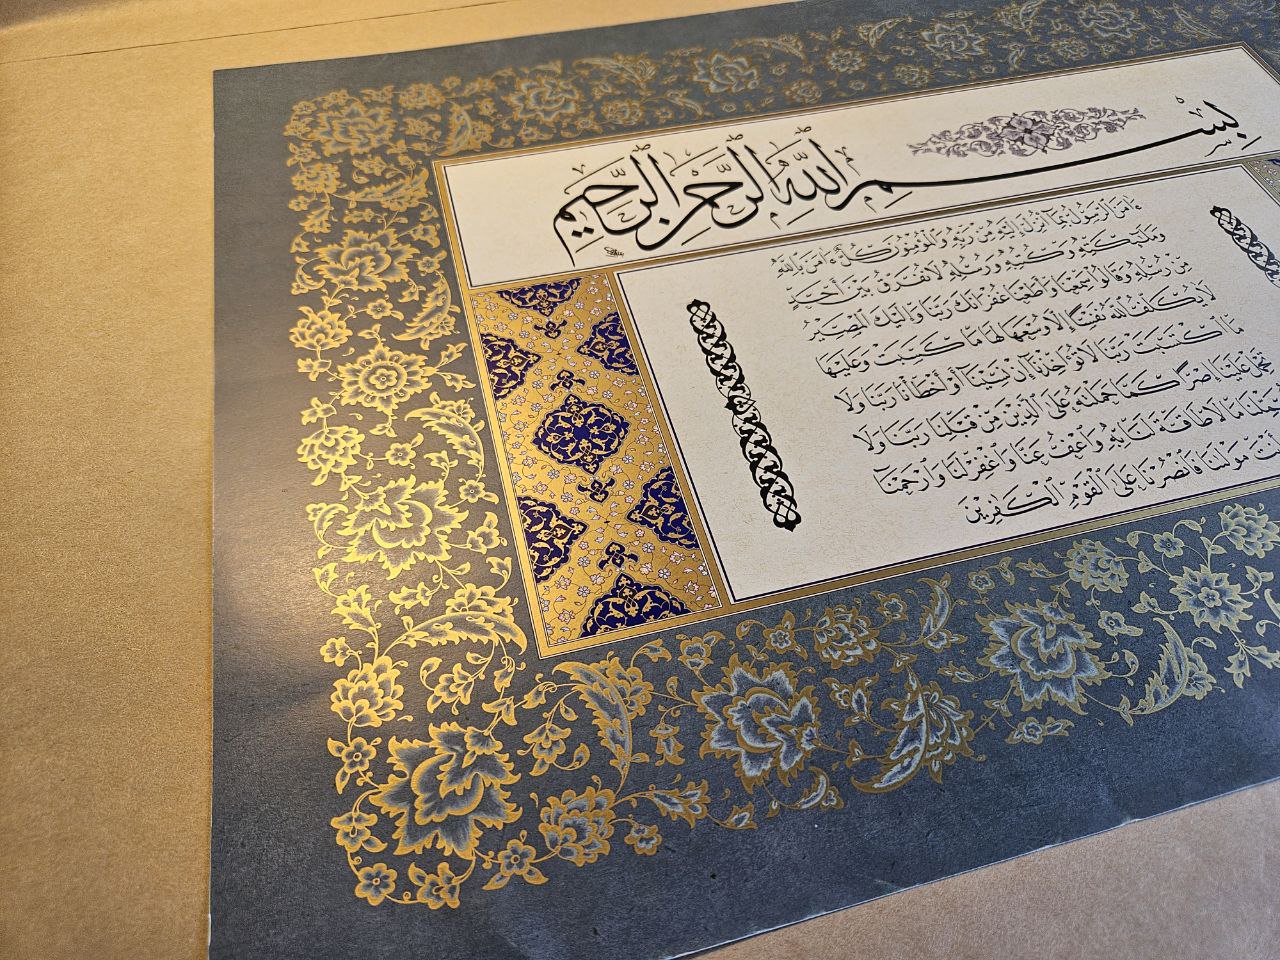 بِسْمِ اللّٰهِ الرَّحْمٰنِ الرَّحِيمِ
ءَامَنَ الرَّسُولُ بِمَا أُنْزِلَ إِلَيْهِ مِنْ رَبِّهِ وَالْمُؤْمِنُونَ كُلٌّ ءَامَنَ بِاللّٰهِ
وَمَلٰئِكَتِهِ وَكُتُبِهِ وَرُسُلِهِ لَا نُفَرِّقُ بَيْنَ أَحَدٍ
مِنْ رُسُلِهِ وَقَالُوا سَمِعْنَا وَأَطَعْنَا غُفْرَانَكَ رَبَّنَا وَإِلَيْكَ الْمَصِيرُ
لَا يُكَلِّفُ اللّٰهُ نَفْسًا إِلَّا وُسْعَهَا لَهَا مَا كَسَبَتْ وَعَلَيْهَا
مَا اكْتَسَبَتْ رَبَّنَا لَا تُؤَاخِذْنَا إِنْ نَسِينَا أَوْ أَخْطَأْنَا رَبَّنَا وَلَا
تَحْمِلْ عَلَيْنَا إِصْرًا كَمَا حَمَلْتَهُ عَلَى الَّذِينَ مِنْ قَبْلِنَا رَبَّنَا وَلَا
تُحَمِّلْنَا مَا لَا طَاقَةَ لَنَا بِهِ وَاعْفُ عَنَّا وَاغْفِرْ لَنَا وَارْحَمْنَا
أَنْتَ مَوْلٰنَا فَانْصُرْنَا عَلَى الْقَوْمِ الْكَافِرِينَ